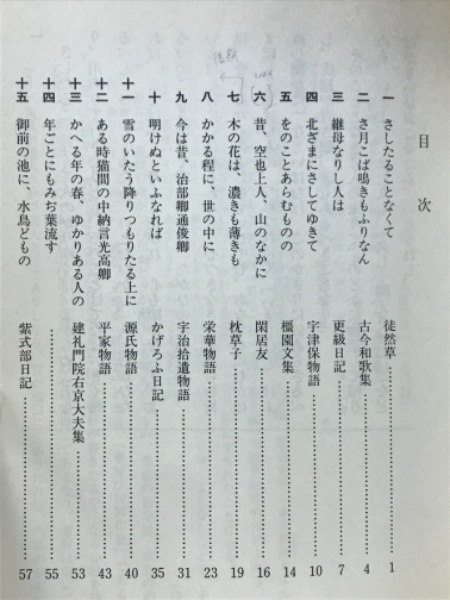 目次
一 さしたることなくて 徒然草 1
二 さ月こば鳴きもふりなん 古今和歌集 4
三 継母なりし人は 更級日記 7
四 北ざまにさしてゆきて 宇津保物語 10
五 をのことあらむものの 橿園文集 14
六 昔、空也上人、山のなかに 閑居友 16
七 木の花は、濃きも薄きも 枕草子 19
八 かかる程に、世の中に 栄華物語 23
九 今は昔、治部卿通俊卿 宇治拾遺物語 31
十 明けぬといふなれば かげろふ日記 35
十一 雪のいたう降りつもりたる上に 源氏物語 40
十二 ある時猫間の中納言光高卿 平家物語 43
十三 かへる年の春、ゆかりある人の 建礼門院右京大夫集 53
十四 年ごとにもみぢ葉流す 55
十五 御前の池に、水鳥どもの 紫式部日記 57